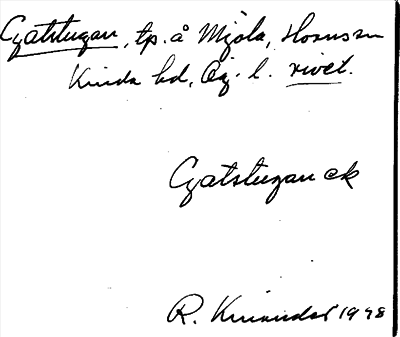 Gatstugan, tp. å Mjöla, Hornssn
Kinda hd, Ög. l. rivet.
Gatstugan ek
R. 1948